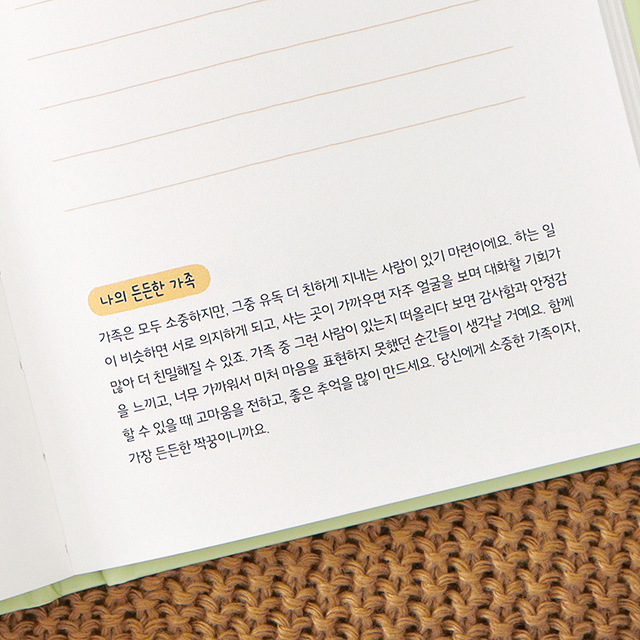 나의 든든한 가족
가족은 모두 소중하지만, 그중 유독 더 친하게 지내는 사람이 있기 마련이에요. 하는 일
이 비슷하면 서로 의지하게 되고, 사는 곳이 가까우면 자주 얼굴을 보며 대화할 기회가
많아 더 친밀해질 수 있죠. 가족 중 그런 사람이 있는지 떠올리다 보면 감사함과 안정감
을 느끼고, 너무 가까워서 미처 마음을 표현하지 못했던 순간들이 생각날 거예요. 함께
할 수 있을 때 고마움을 전하고, 좋은 추억을 많이 만드세요. 당신에게 소중한 가족이자,
가장 든든한 짝꿍이니까요.